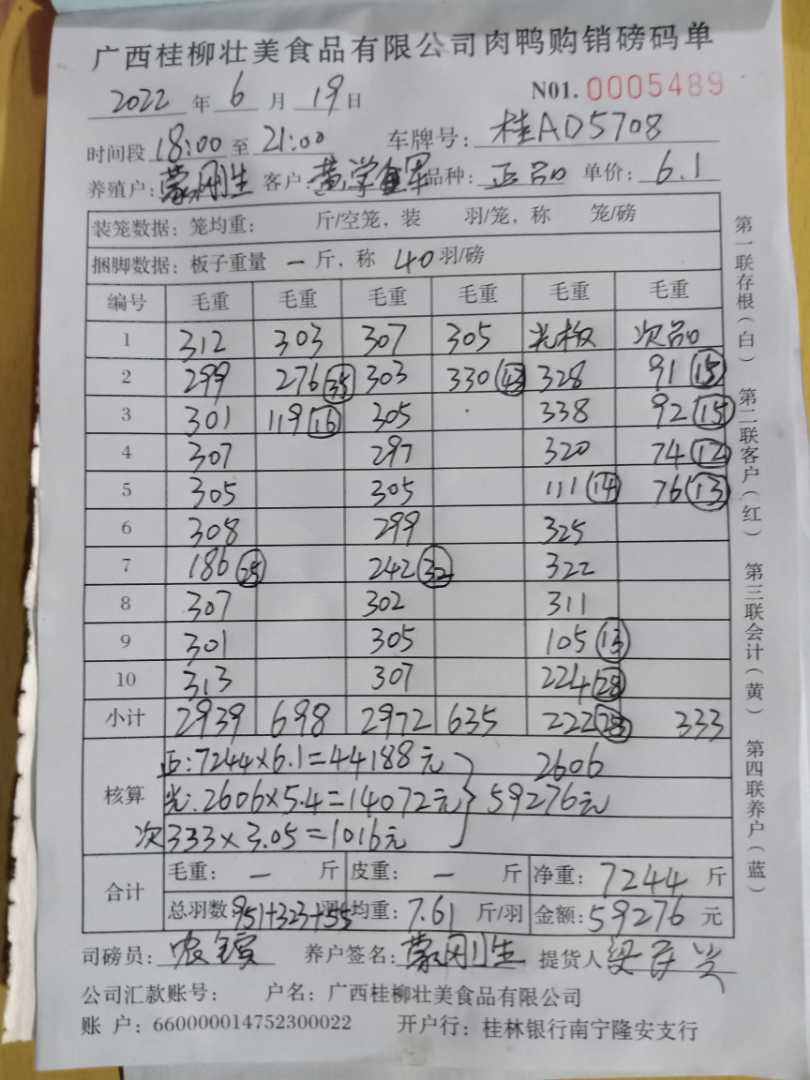 广西桂柳壮美食品有限公司肉鸭购销磅码单
2022 年 6 月 19 日 N01. 0005489
时间段 18:00 至 21:00 车牌号: 桂AD5708
养殖户: 蒙刚生 客户: 黄学军 品种: 正品 单价: 6.1
装笼数据: 笼均重: 斤/空笼, 装 羽/笼, 称 笼/磅
捆脚数据: 板子重量 一 斤, 称 40 羽/磅
编号 毛重 毛重 毛重 毛重 毛重 毛重
1 312 303 307 305 光板 次品
2 299 276 (35) 303 330 (43) 328 91 (15)
3 301 119 (16) 305 338 92 (15)
4 307 297 320 74 (12)
5 305 305 111 (14) 76 (13)
6 308 299 325
7 186 (25) 242 (32) 322
8 307 302 311
9 301 305 105 (13)
10 313 307 224 (28)
小计 2939 698 2972 635 222 (28) 333
核算 正: 7244×6.1=44188元 2606
光: 2606×5.4=14072元 } 59276元
次 333×3.05=1016元
合计 毛重: 一 斤 皮重: 一 斤 净重: 7244 斤
总羽数: 951+323+55 均重: 7.61 斤/羽 金额: 59276 元
司磅员: 农 养户签名: 蒙刚生 提货人 梁
公司汇款账号: 户名: 广西桂柳壮美食品有限公司
账 户: 660000014752300022 开户行: 桂林银行南宁隆安支行
第一联存根(白) 第二联客户(红) 第三联会计(黄) 第四联养户(蓝)